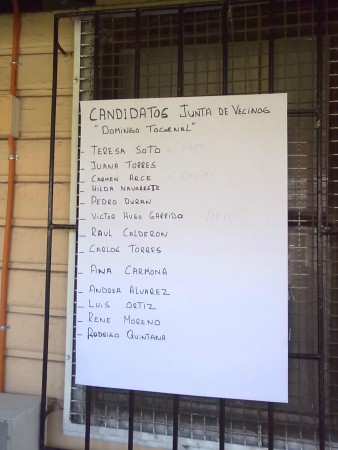 CANDIDATOS JUNTA DE VECINOS
"DOMINGO TOCORNAL"
- TERESA SOTO
- JUANA TORRES
- CARMEN ARCE
- HILDA NAVARRETE
- PEDRO DURAN
- VICTOR HUGO GARRIDO
- RAUL CALDERON
- CARLOS TORRES
- ANA CARMONA
- ANDREA ALVAREZ
- LUIS ORTIZ
- RENE MORENO
- RODRIGO QUINTANA